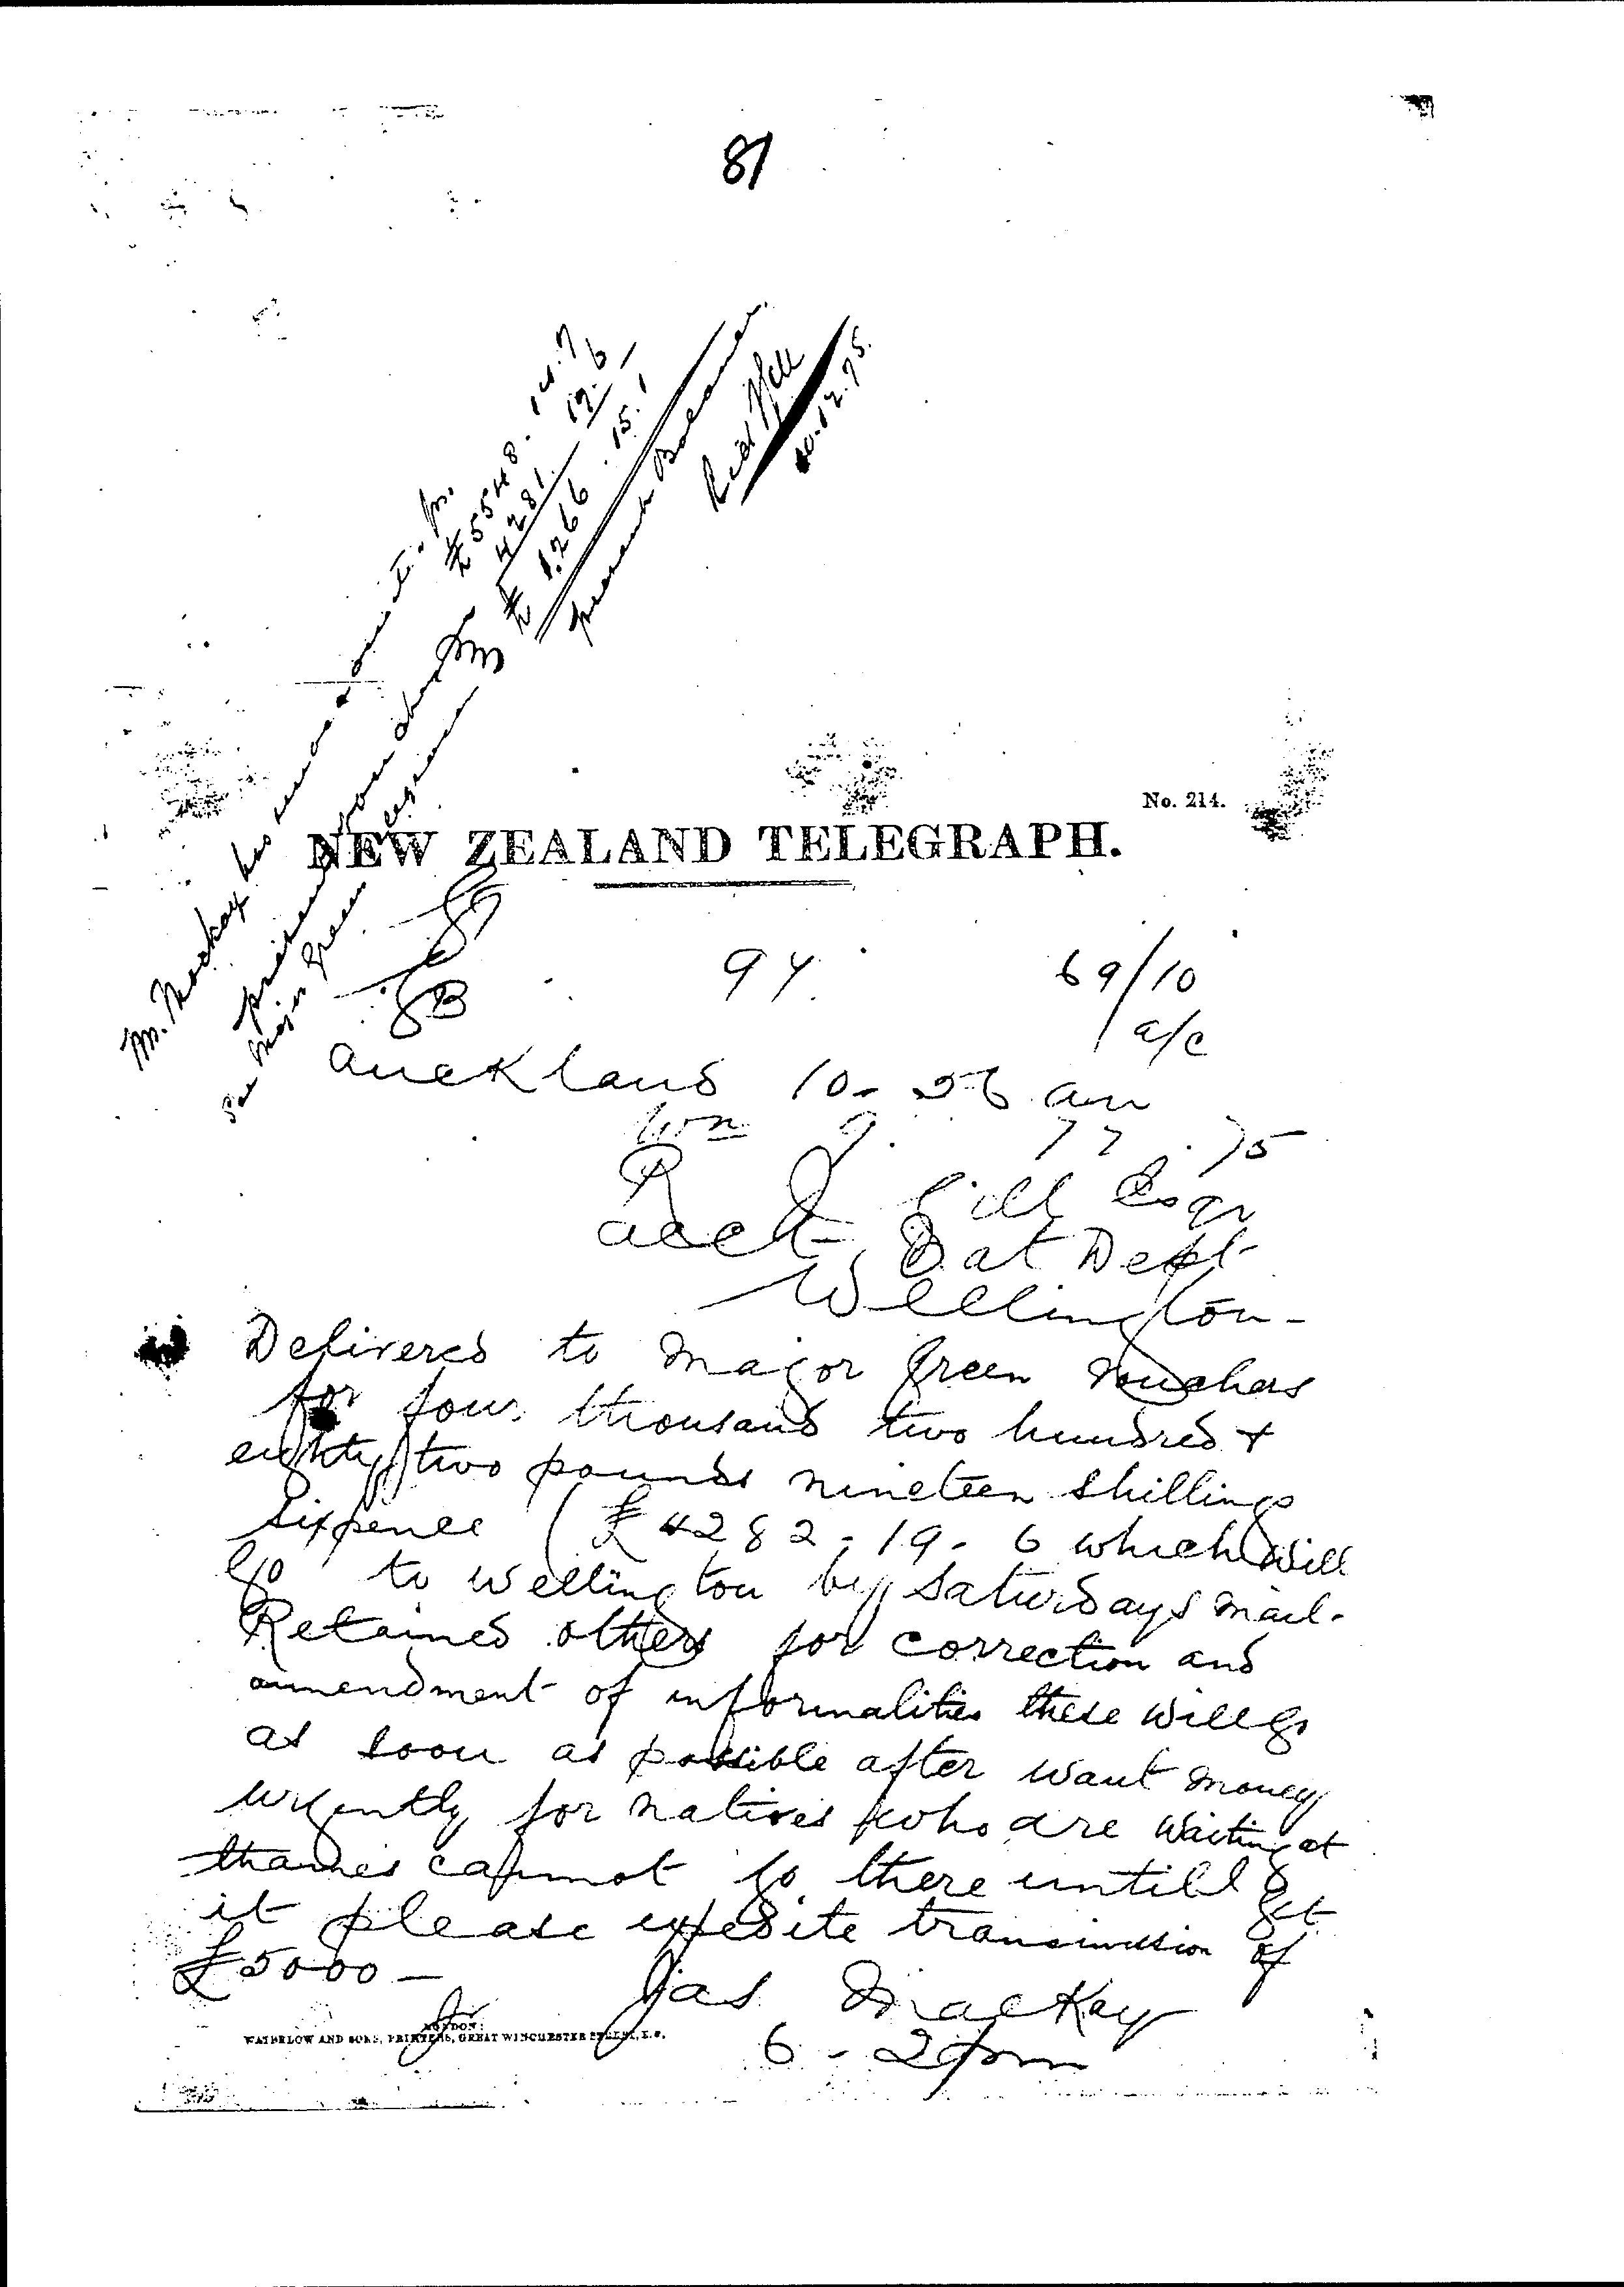 81
Mr. Mackay has in
£5548. 14. 7
4281. 19. 6
£1266. 15. 1
present Balance
10.12.75.
See Major Green telegram
No. 214.
NEW ZEALAND TELEGRAPH.
94
69/10
a/c
Auckland 10-56 am
Wn 9. 75
R Gill Esqr
Acct Nat Dept
Wellington-
Delivered to Major Green vouchers
for four thousand two hundred &
eighty two pounds nineteen shillings
sixpence (£4282-19-6 which will
go to Wellington by Saturdays mail-
Retained others for correction and
ammendment of informalities these will go
as soon as possible after want money
urgently for natives who are waiting at
thames cannot go there untill I get
it please expedite transmission of
£5000-
Jas Mackay
LONDON:
WATERLOW AND SONS, PRINTERS, GREAT WINCHESTER STREET, E.C.
6-2pm